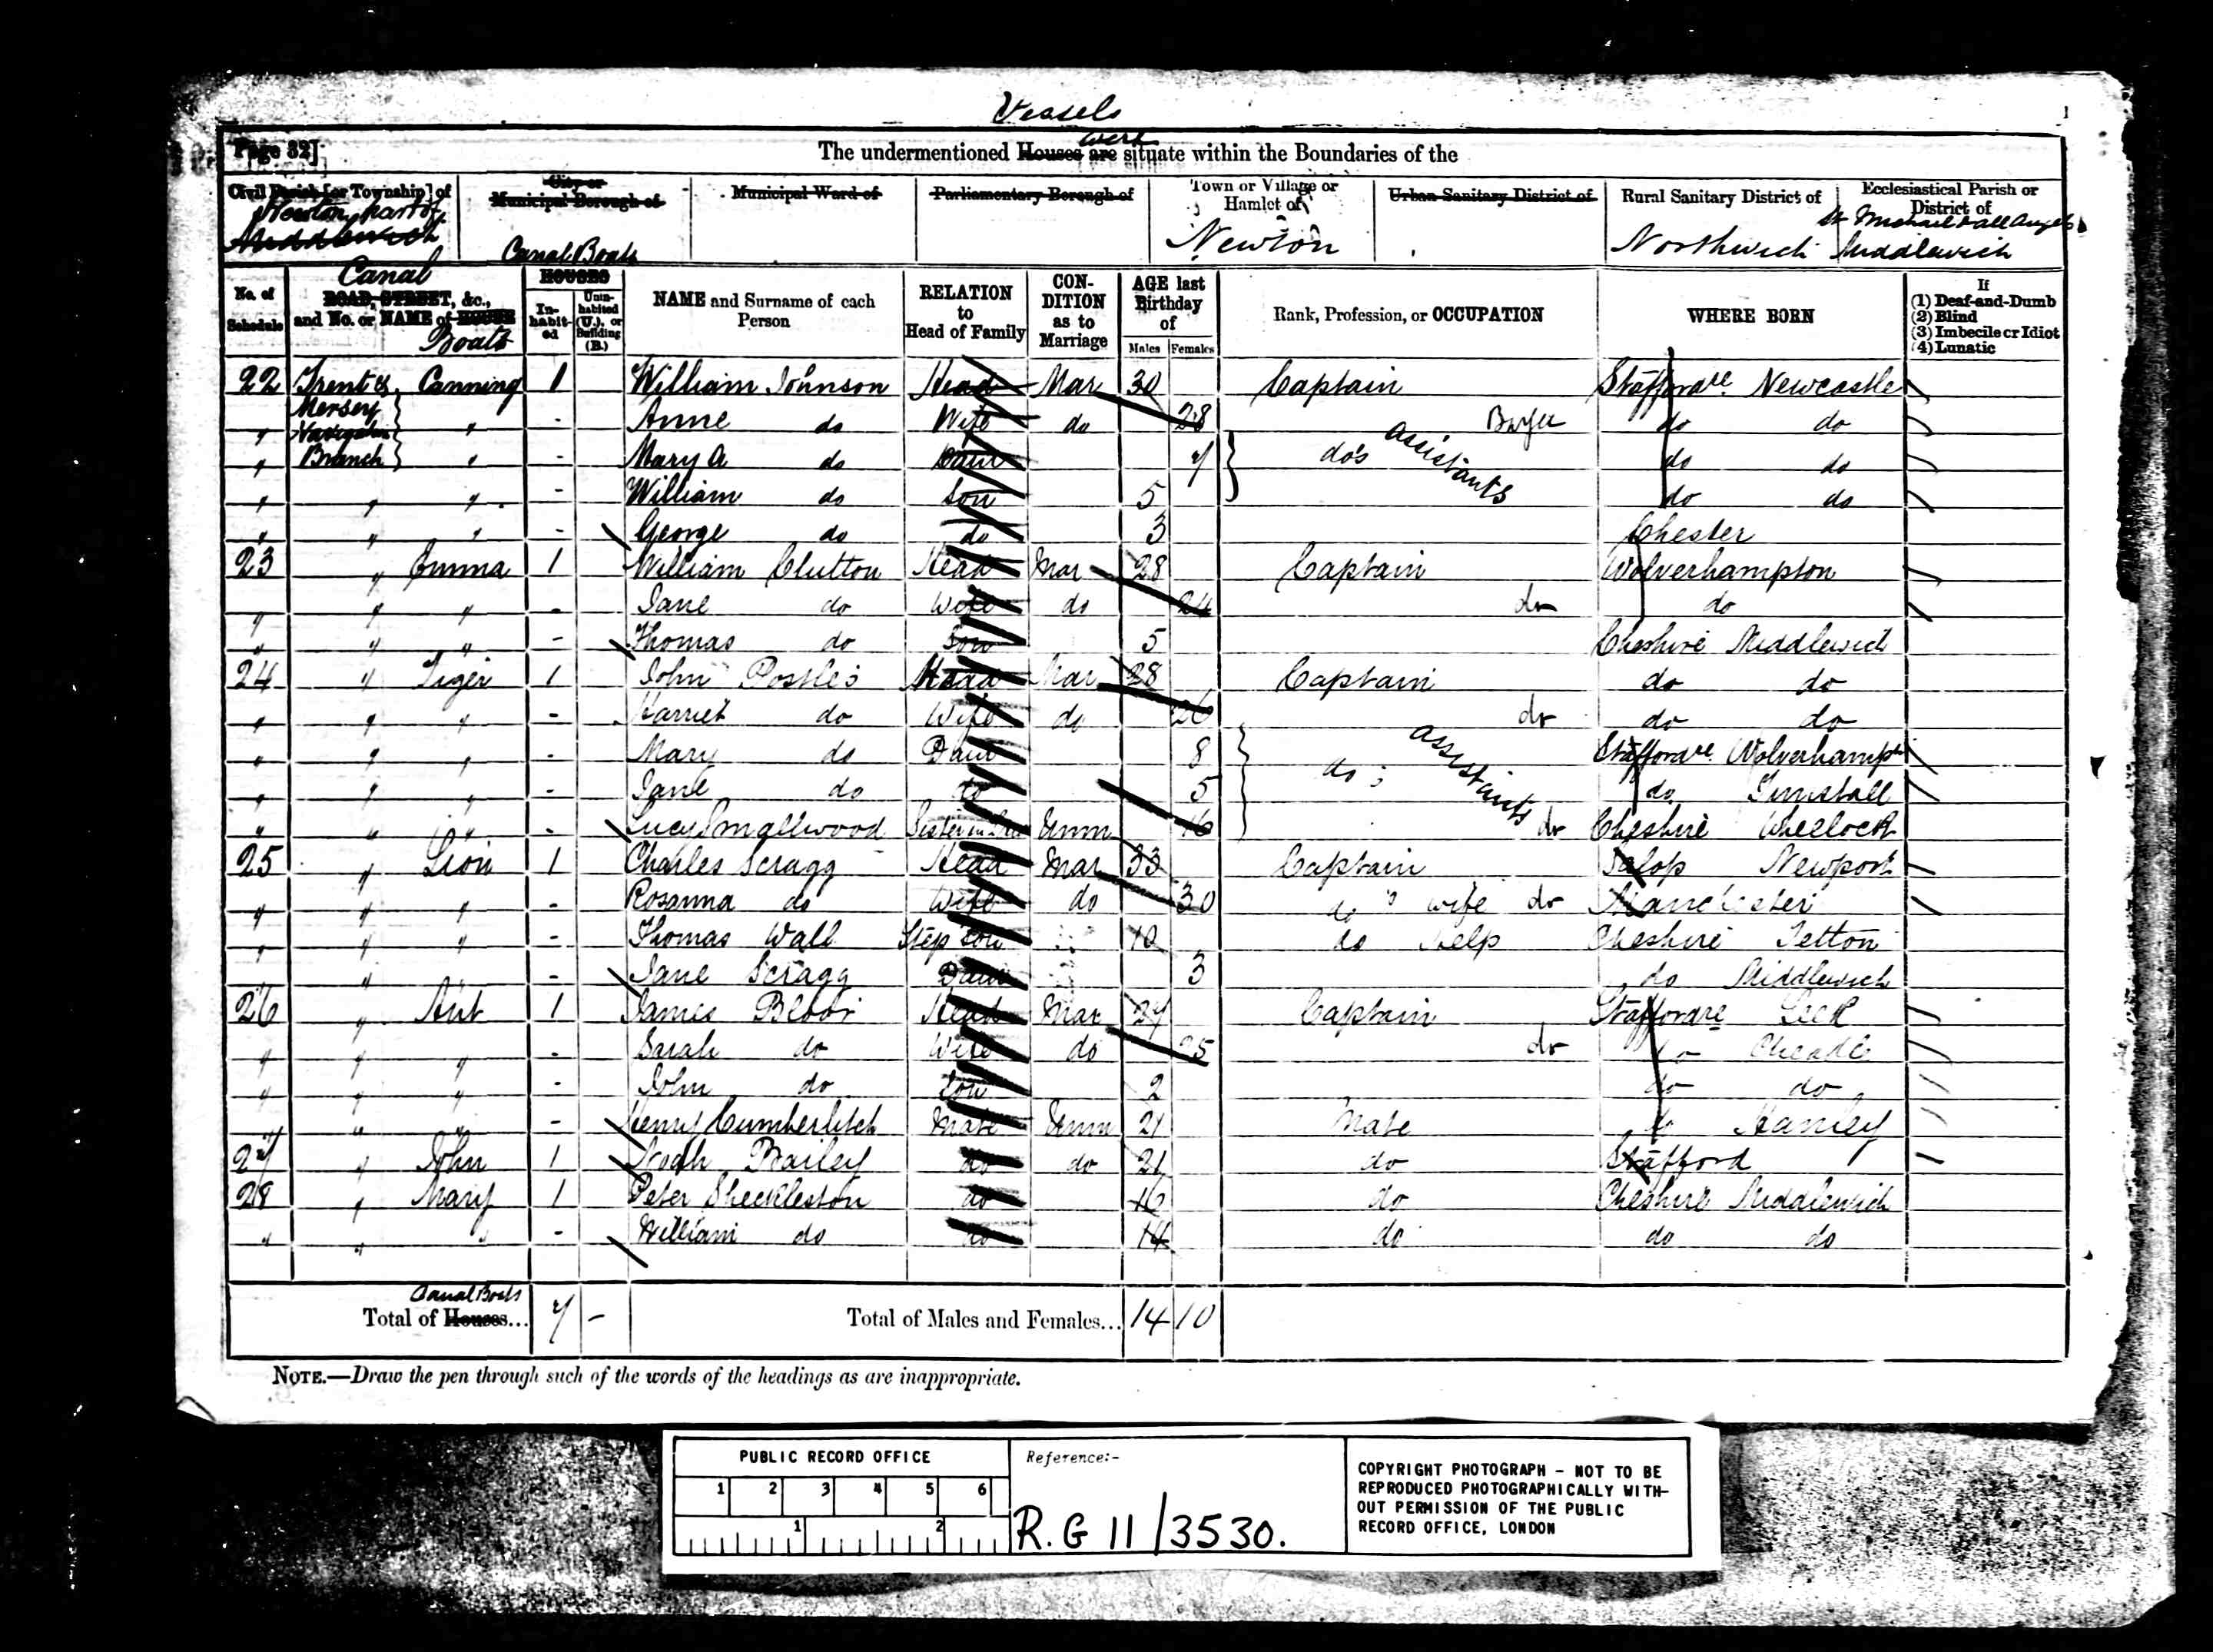 Vessels
were
Page 32]
The undermentioned Houses are situate within the Boundaries of the
Civil Parish [or Township] of
Newton part of
Middlewich
City or
Municipal Borough of
Canal Boats
Municipal Ward of
Parliamentary Borough of
Town or Village or
Hamlet of
Newton
Urban Sanitary District of
Rural Sanitary District of
Northwich
Ecclesiastical Parish or
District of
St Michael & all Angels
Middlewich
No. of
Schedule
Canal
ROAD, STREET, &c.,
and No. or NAME of HOUSE
Boats
HOUSES
In-
habit-
ed
Unin-
habited
(U.), or
Building
(B.)
NAME and Surname of each
Person
RELATION
to
Head of Family
CON-
DITION
as to
Marriage
AGE last
Birthday
of
Males Females
Rank, Profession, or OCCUPATION
WHERE BORN
If
(1) Deaf-and-Dumb
(2) Blind
(3) Imbecile or Idiot
(4) Lunatic
22 Trent & Canning 1 William Johnson Head Mar 30 Captain Staffordre. Newcastle
" Mersey Navigation " - Anne do Wife do 28 do do
" Branch " - Mary A do Daur 7 do's assistants do do
" " " - William do Son 5 do do
" " " - George do do 3 Chester
23 " Emma 1 William Clutton Head Mar 28 Captain Wolverhampton
" " " - Jane do Wife do 24 do do
" " " - Thomas do Son 5 Cheshire Middlewich
24 " Tiger 1 John Postles Head Mar 28 Captain do do
" " " - Harriet do Wife do 26 do do do
" " " - Mary do Daur 8 Staffordre. Wolverhampt
" " " - Jane do do 5 do's assistants do Tunstall
" " " - Lucy Smallwood Sister in Law Unm 16 do Cheshire Wheelock
25 " Lion 1 Charles Scragg Head Mar 33 Captain Salop Newport
" " " - Rosanna do Wife do 30 do's wife do Manchester
" " " - Thomas Wall Step son 10 do Help Cheshire Tetton
" " - Jane Scragg Daur 3 do Middlewich
26 " Ant 1 James Bloor Head Mar 27 Captain Staffordre Leek
" " " - Sarah do Wife do 25 do do Cheadle
" " " - John do Son 2 do do
" " " - Henry Cumberlitch Mate Unm 21 Mate do Hanley
27 " John 1 Noah Bailey do do 21 do Stafford
28 " Mary 1 Peter Sheckleston do 16 do Cheshire Middlewich
" " " - William do do 14 do do do
Canal Boats
Total of Houses... 7 - Total of Males and Females... 14 10
NOTE.—Draw the pen through such of the words of the headings as are inappropriate.
PUBLIC RECORD OFFICE
1 2 3 4 5 6
1 2
Reference:-
R.G 11/3530.
COPYRIGHT PHOTOGRAPH - NOT TO BE
REPRODUCED PHOTOGRAPHICALLY WITH-
OUT PERMISSION OF THE PUBLIC
RECORD OFFICE, LONDON